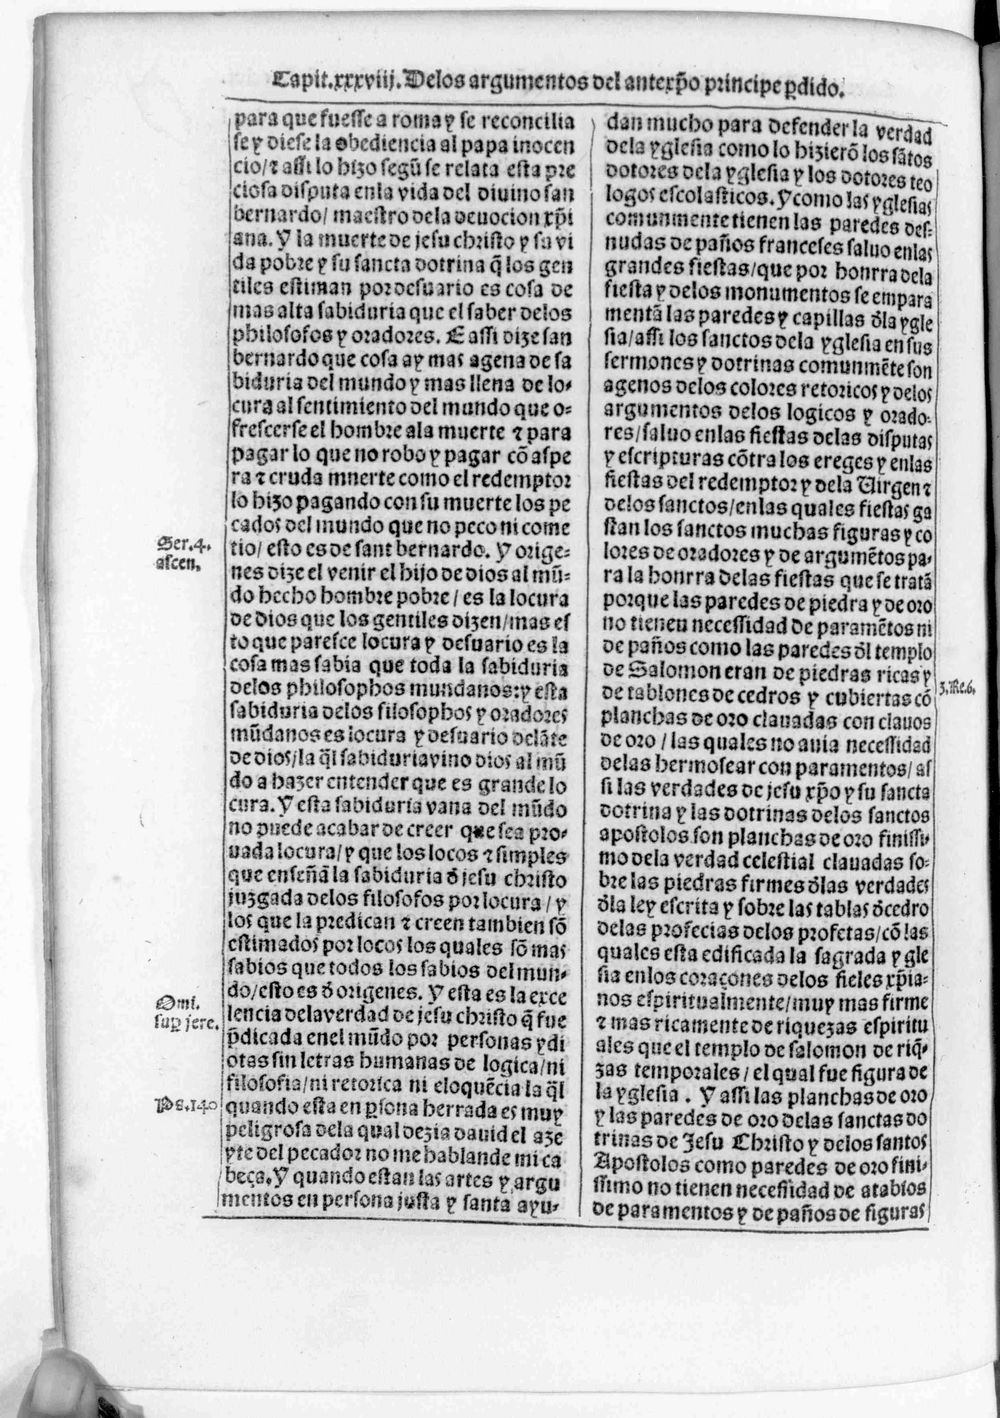 Capit.xxxviij.Delos argumentos del antexp̃o principe ꝑdido.
para que fuesse a roma y se reconcilia
se y diese la obediencia al papa inocen
cio/⁊ assi lo hizo segũ se relata esta pre
ciosa disputa enla vida del diuino san
bernardo/ maestro dela deuocion xp̃i
ana. Y la muerte de jesu christo y su vi
da pobre y su sancta dotrina q̃ los gen
tiles estiman por desuario es cosa de
mas alta sabiduria que el saber delos
philosofos y oradores. E assi dize san
bernardo que cosa ay mas agena de sa
biduria del mundo y mas llena de lo-
cura al sentimiento del mundo que o-
frescerse el hombre ala muerte ⁊ para
pagar lo que no robo y pagar cõ aspe
ra ⁊ cruda mnerte como el redemptor
lo hizo pagando con su muerte los pe
cados del mundo que no peco ni come
Ser.4.
ascen.
tio/ esto es de sant bernardo. Y orige-
nes dize el venir el hijo de dios al mũ-
do hecho hombre pobre/ es la locura
de dios que los gentiles dizen/mas es
to que paresce locura y desuario es la
cosa mas sabia que toda la sabiduria
delos philosophos mundanos:y esta
sabiduria delos filosophos y oradores
mũdanos es locura y desuario delãte
de dios/la q̃l sabiduria vino dios al mũ
do a hazer entender que es grande lo
cura. Y esta sabiduria vana del mũdo
no puede acabar de creer que sea pro-
uada locura/y que los locos ⁊ simples
que enseñã la sabiduria õ jesu christo
juzgada delos filosofos por locura/ y
los que la predican ⁊ creen tambien sõ
estimados por locos los quales sõ mas
sabios que todos los sabios del mun-
do/esto es õ origenes. Y esta es la exce
Omi.
suꝑ jere.
lencia dela verdad de jesu christo q̃ fue
p̃dicada enel mũdo por personas ydi
otas sin letras humanas de logica/ni
filosofia/ni retorica ni eloquẽcia la q̃l
Ps.140
quando esta en ꝑsona herrada es muy
peligrosa dela qual dezia dauid el aze
yte del pecador no me hablande mi ca
beça.Y quando estan las artes y argu
mentos en persona justa y santa ayu-
dan mucho para defender la verdad
dela yglesia como lo hizierõ los sãtos
dotores dela yglesia y los dotores teo
logos escolasticos. Y como las yglesias
comunmente tienen las paredes des-
nudas de paños franceses saluo enlas
grandes fiestas/que por honrra dela
fiesta y delos monumentos se empara
mentã las paredes y capillas õla ygle
sia/assi los sanctos dela yglesia en sus
sermones y dotrinas comunmẽte son
agenos delos colores retoricos y delos
argumentos delos logicos y orado-
res/saluo enlas fiestas delas disputas
y escripturas cõtra los ereges y enlas
fiestas del redemptor y dela Uirgen ⁊
delos sanctos/enlas quales fiestas ga
stan los sanctos muchas figuras y co
lores de oradores y de argumẽtos pa-
ra la honrra delas fiestas que se tratã
porque las paredes de piedra y de oro
no tieneu necessidad de paramẽtos ni
de paños como las paredes õl templo
de Salomon eran de piedras ricas y
3.Re.6.
de tablones de cedros y cubiertas cõ
planchas de oro clauadas con clauos
de oro/las quales no auia necessidad
delas hermosear con paramentos/as
si las verdades de jesu xp̃o y su sancta
dotrina y las dotrinas delos sanctos
apostolos son planchas de oro finissi-
mo dela verdad celestial clauadas so-
bre las piedras firmes õlas verdades
õla ley escrita y sobre las tablas õ cedro
delas profecias delos profetas/cõ las
quales esta edificada la sagrada ygle
sia enlos coraçones delos fieles xp̃ia-
nos espiritualmente/muy mas firme
⁊ mas ricamente de riquezas espiritu
ales que el templo de salomon de riq̃-
zas temporales/ el qual fue figura de
la yglesia. Y assi las planchas de oro
y las paredes de oro delas sanctas do
trinas de Jesu Christo y delos santos
Apostolos como paredes de oro fini-
ssimo no tienen necessidad de atabios
de paramentos y de paños de figuras